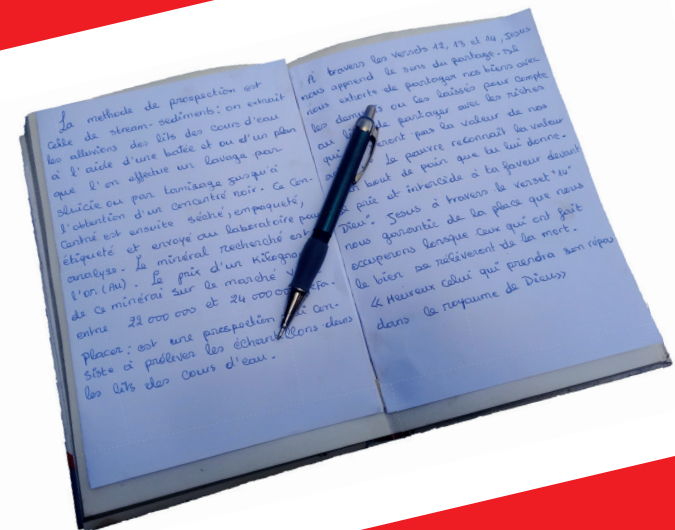 La methode de prospection est
celle de stream-sediments: on extrait
les alluvions des lits des cours d'eau
à l'aide d'une batée et ou d'un plan
que l'on effectue un lavage par
sluicie ou par tamisage jusqu'à
l'obtention d'un concentré noir. Ce con-
centré est ensuite séché, empaqueté,
étiqueté et envoyé au laboratoire pour
analyse. Le minéral recherché est
l'or (Au). Le prix d'un Kilogra
de ce minérai sur le marché
entre 22 000 000 et 24 000 000 cfa.
placer: est une prospection qui con-
siste à prélever les échantillons dans
les lits des cours d'eau.
A travers les versets 12, 13 et 14, Jesus
nous apprend le sens du partage. Il
nous exhorte de partager nos biens avec
les démunis ou les laissés pour compte
au de partager avec les riches
qui ront pas la valeur de nos
Le pauvre reconnaît la valeur
bout de pain que tu lui donne.
prie et intercède à ta faveur devant
Dieu". Jesus à travers le verset "14"
nous garantie de la place que nous
occuperons lorsque ceux qui ont fait
le bien se relèveront de la mort.
« Heureux celui qui prendra son repas
dans le royaume de Dieu»